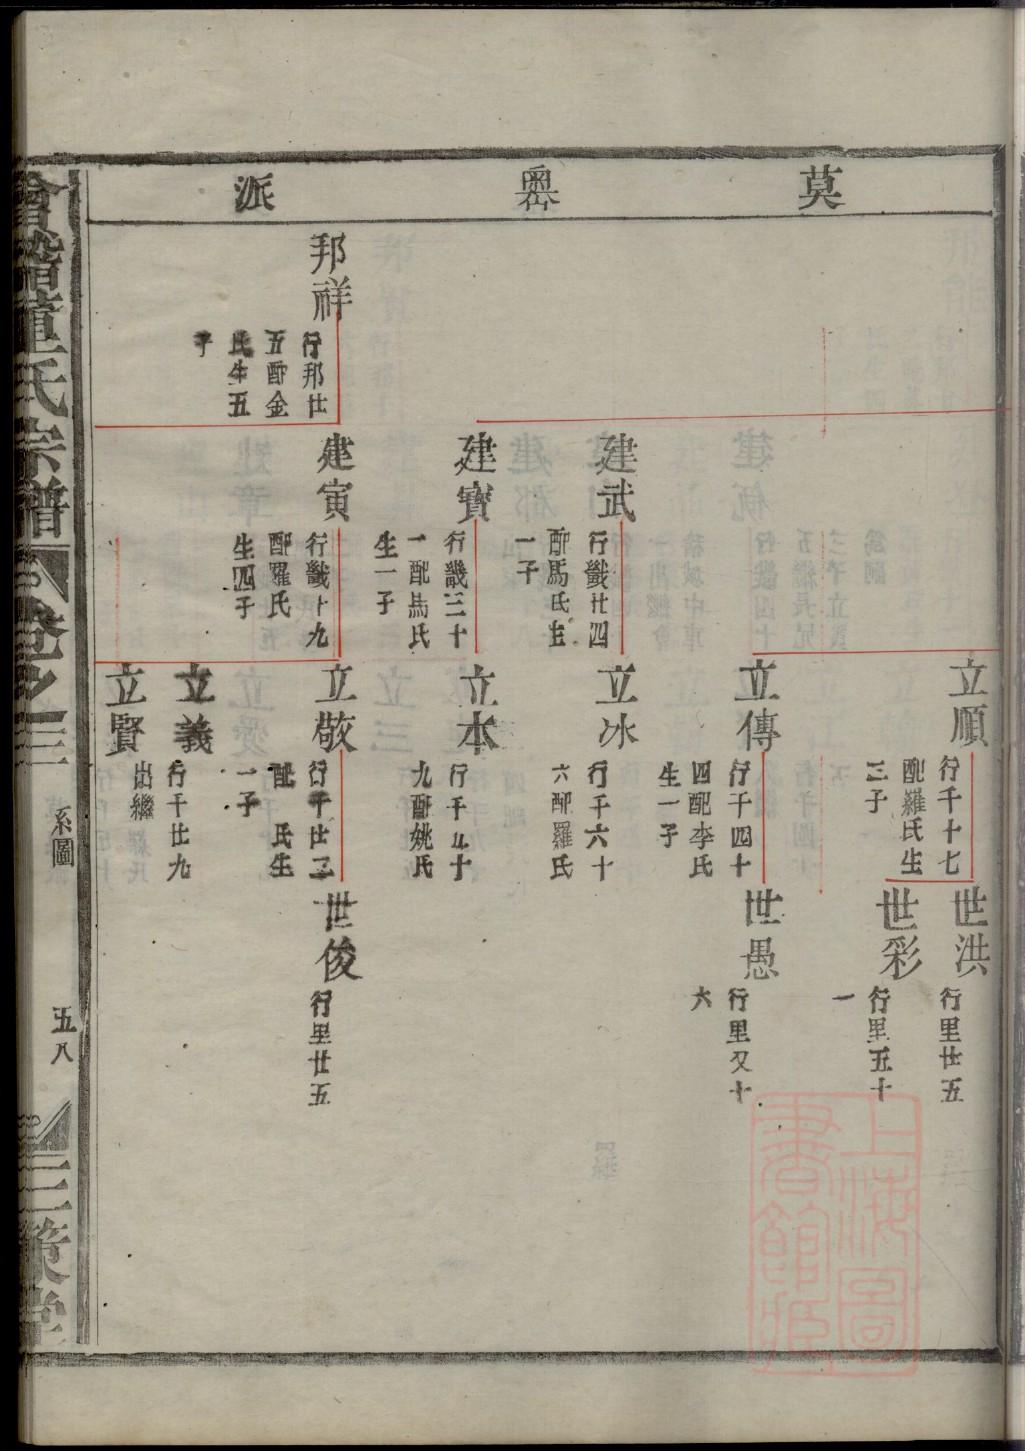 莫奧派
立順
行千十七
配羅氏生
二子
世洪
行里廿五
世彩
行里五十
一
立傳
行千四十
四配李氏
生一子
世愚
行里又十
六
建武
行畿廿四
配馬氏生
一子
立冰
行千六十
六配羅氏
建寶
行畿三十
一配馬氏
生一子
立本
行千五十
九配姚氏
邦祥
行邦廿
五配金
氏生五
子
建寅
行畿十九
配羅氏
生四子
立敬
行千廿三
配 氏生
一子
世俊
行里廿五
立義
行千廿九
出繼
立賢
會稽董氏宗譜
卷之三
系圖
五八
三策堂
上海圖書館藏